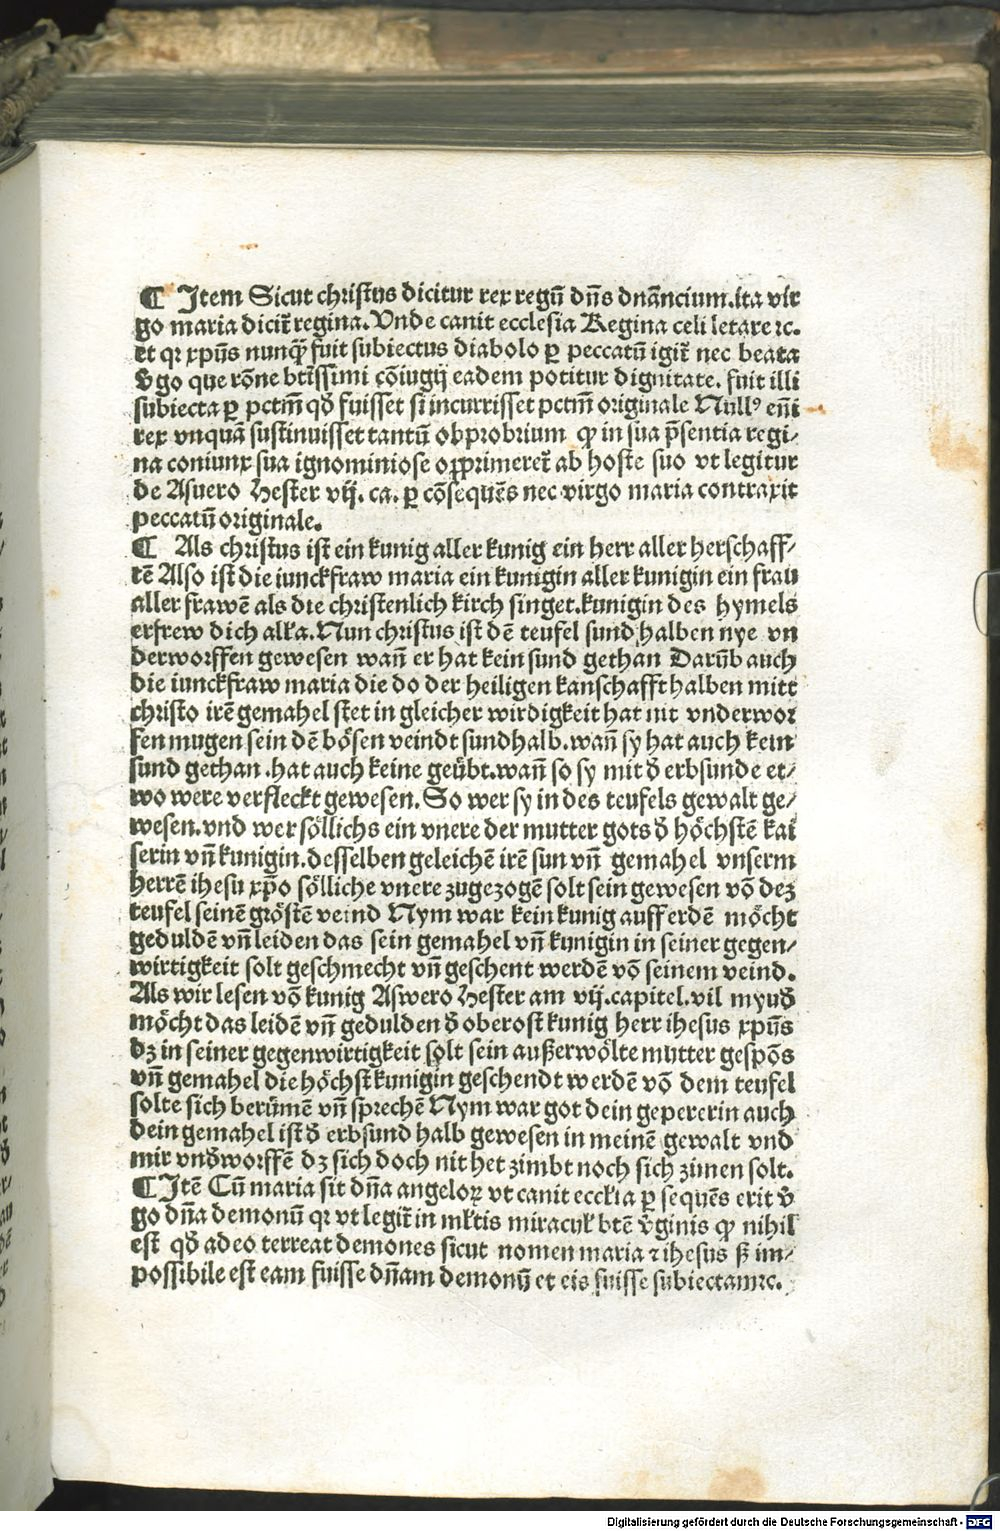 ¶ Item Sicut christus dicitur rex regū dn̄s dnāncium.ita vir
go maria dicit̄ regina.Vnde canit ecclesia Regina celi letare ⁊c.
et qꝛ xpūs nunqꝫ̄ fuit subiectus diabolo ꝑ peccatū igit̄ nec beata
v̄go que rōne btissimi cōiugij eadem potitur dignitate. fuit illi
subiecta ꝑ pctm̄ qd̄ fuisset si incurrisset pctm̄ originale Nullꝰ em̄
rex vnquā sustinuisset tantū obprobrium ꝙ in sua p̄sentia regi⸗
na coniunx sua ignominiose opprimeret̄ ab hoste suo vt legitur
de Asuero Hester vij. ca. ꝑ cōsequēs nec virgo maria contraxit
peccatū originale.
¶ Als christus ist ein kunig aller kunig ein herr aller herschaff⸗
tē Also ist die iunckfraw maria ein kunigin aller kunigin ein frau
aller frawē als die christenlich kirch singet.kunigin des hymels
erfrew dich alła.Nun christus ist dē teufel sund halben nye vn
derworffen gewesen wan̄ er hat kein sund gethan Darūb auch
die iunckfraw maria die do der heiligen kanschafft halben mitt
christo irē gemahel stet in gleicher wirdigkeit hat nit vnderwor
fen mugen sein dē bösen veindt sundhalb.wan̄ sy hat auch kein
sund gethan.hat auch keine geübt.wan̄ so sy mit d̄ erbsunde et⸗
wo were verfleckt gewesen.So wer sy in des teufels gewalt ge⸗
wesen.vnd wer söllichs ein vnere der mutter gots d̄ höchstē kai
serin vn̄ kunigin.desselben geleichē irē sun vn̄ gemahel vnserm
herrē ihesu xp̄o sölliche vnere zugezogē solt sein gewesen vō dez
teufel seinē gröstē veind Nym war kein kunig auff erdē möcht
geduldē vn̄ leiden das sein gemahel vn̄ kunigin in seiner gegen⸗
wirtigkeit solt geschmecht vn̄ geschent werdē vō seinem veind.
Als wir lesen vō kunig Aswero Hester am vij.capitel.vil mynd̄
möcht das leidē vn̄ gedulden d̄ oberost kunig herr ihesus xpūs
dꝫ in seiner gegenwirtigkeit solt sein außerwölte mutter gespōs
vn̄ gemahel die höchst kunigin geschendt werdē vō dem teufel
solte sich berümē vn̄ sprechē Nym war got dein gepererin auch
dein gemahel ist d̄ erbsund halb gewesen in meinē gewalt vnd
mir vnd̄worffē dꝫ sich doch nit het zimbt noch sich zimen solt.
¶ Itē Cū maria sit dn̄a angeloꝝ vt canit eccłia ꝑ sequēs erit v̄
go dn̄a demonū qꝛ vt legit̄ in młtis miracuł btē v̄ginis ꝙ nihil
est qd̄ adeo terreat demones sicut nomen maria ⁊ ihesus sꝫ im⸗
possibile est eam fuisse dn̄am demonū et eis fuisse subiectam⁊c.
Digitalisierung gefördert durch die Deutsche Forschungsgemeinschaft - DFG